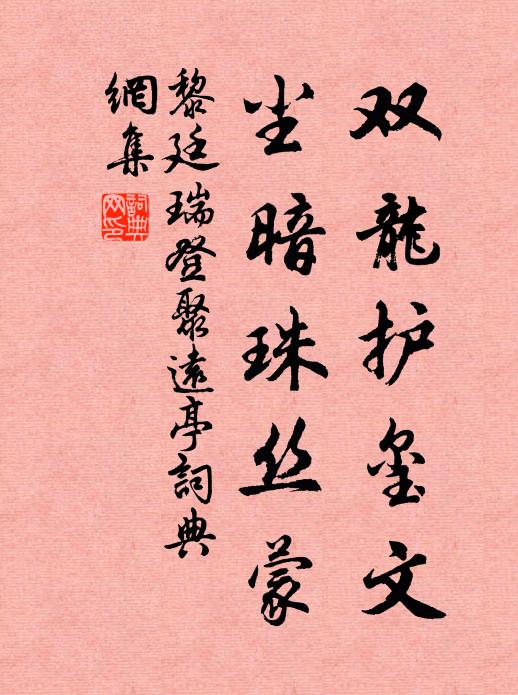 双龍护玺文
尘暗珠丝蒙
黎廷瑞登聚遠亭詞典
網集
詞典
网印